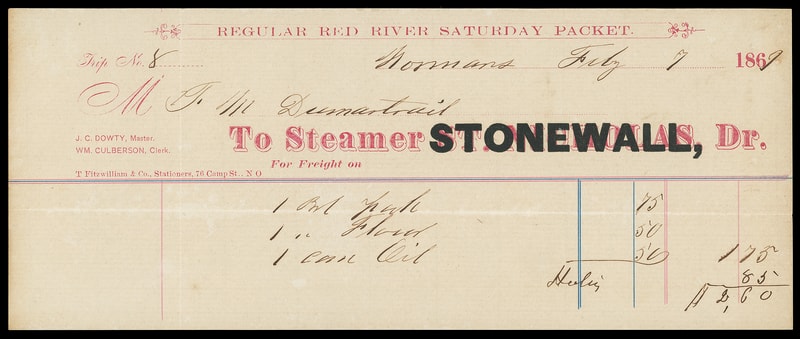 REGULAR RED RIVER SATURDAY PACKET.
Trip No. 8 Normans Feby 7 1869
M
J. C. DOWTY, Master.
WM. CULBERSON, Clerk.
To Steamer STONEWALL, Dr.
For Freight on
T Fitzwilliam & Co., Stationers, 76 Camp St., N O
1 Bbl Pork 75
1 " Flour 50
1 can Oil 50 1 75
85
$ 2,60